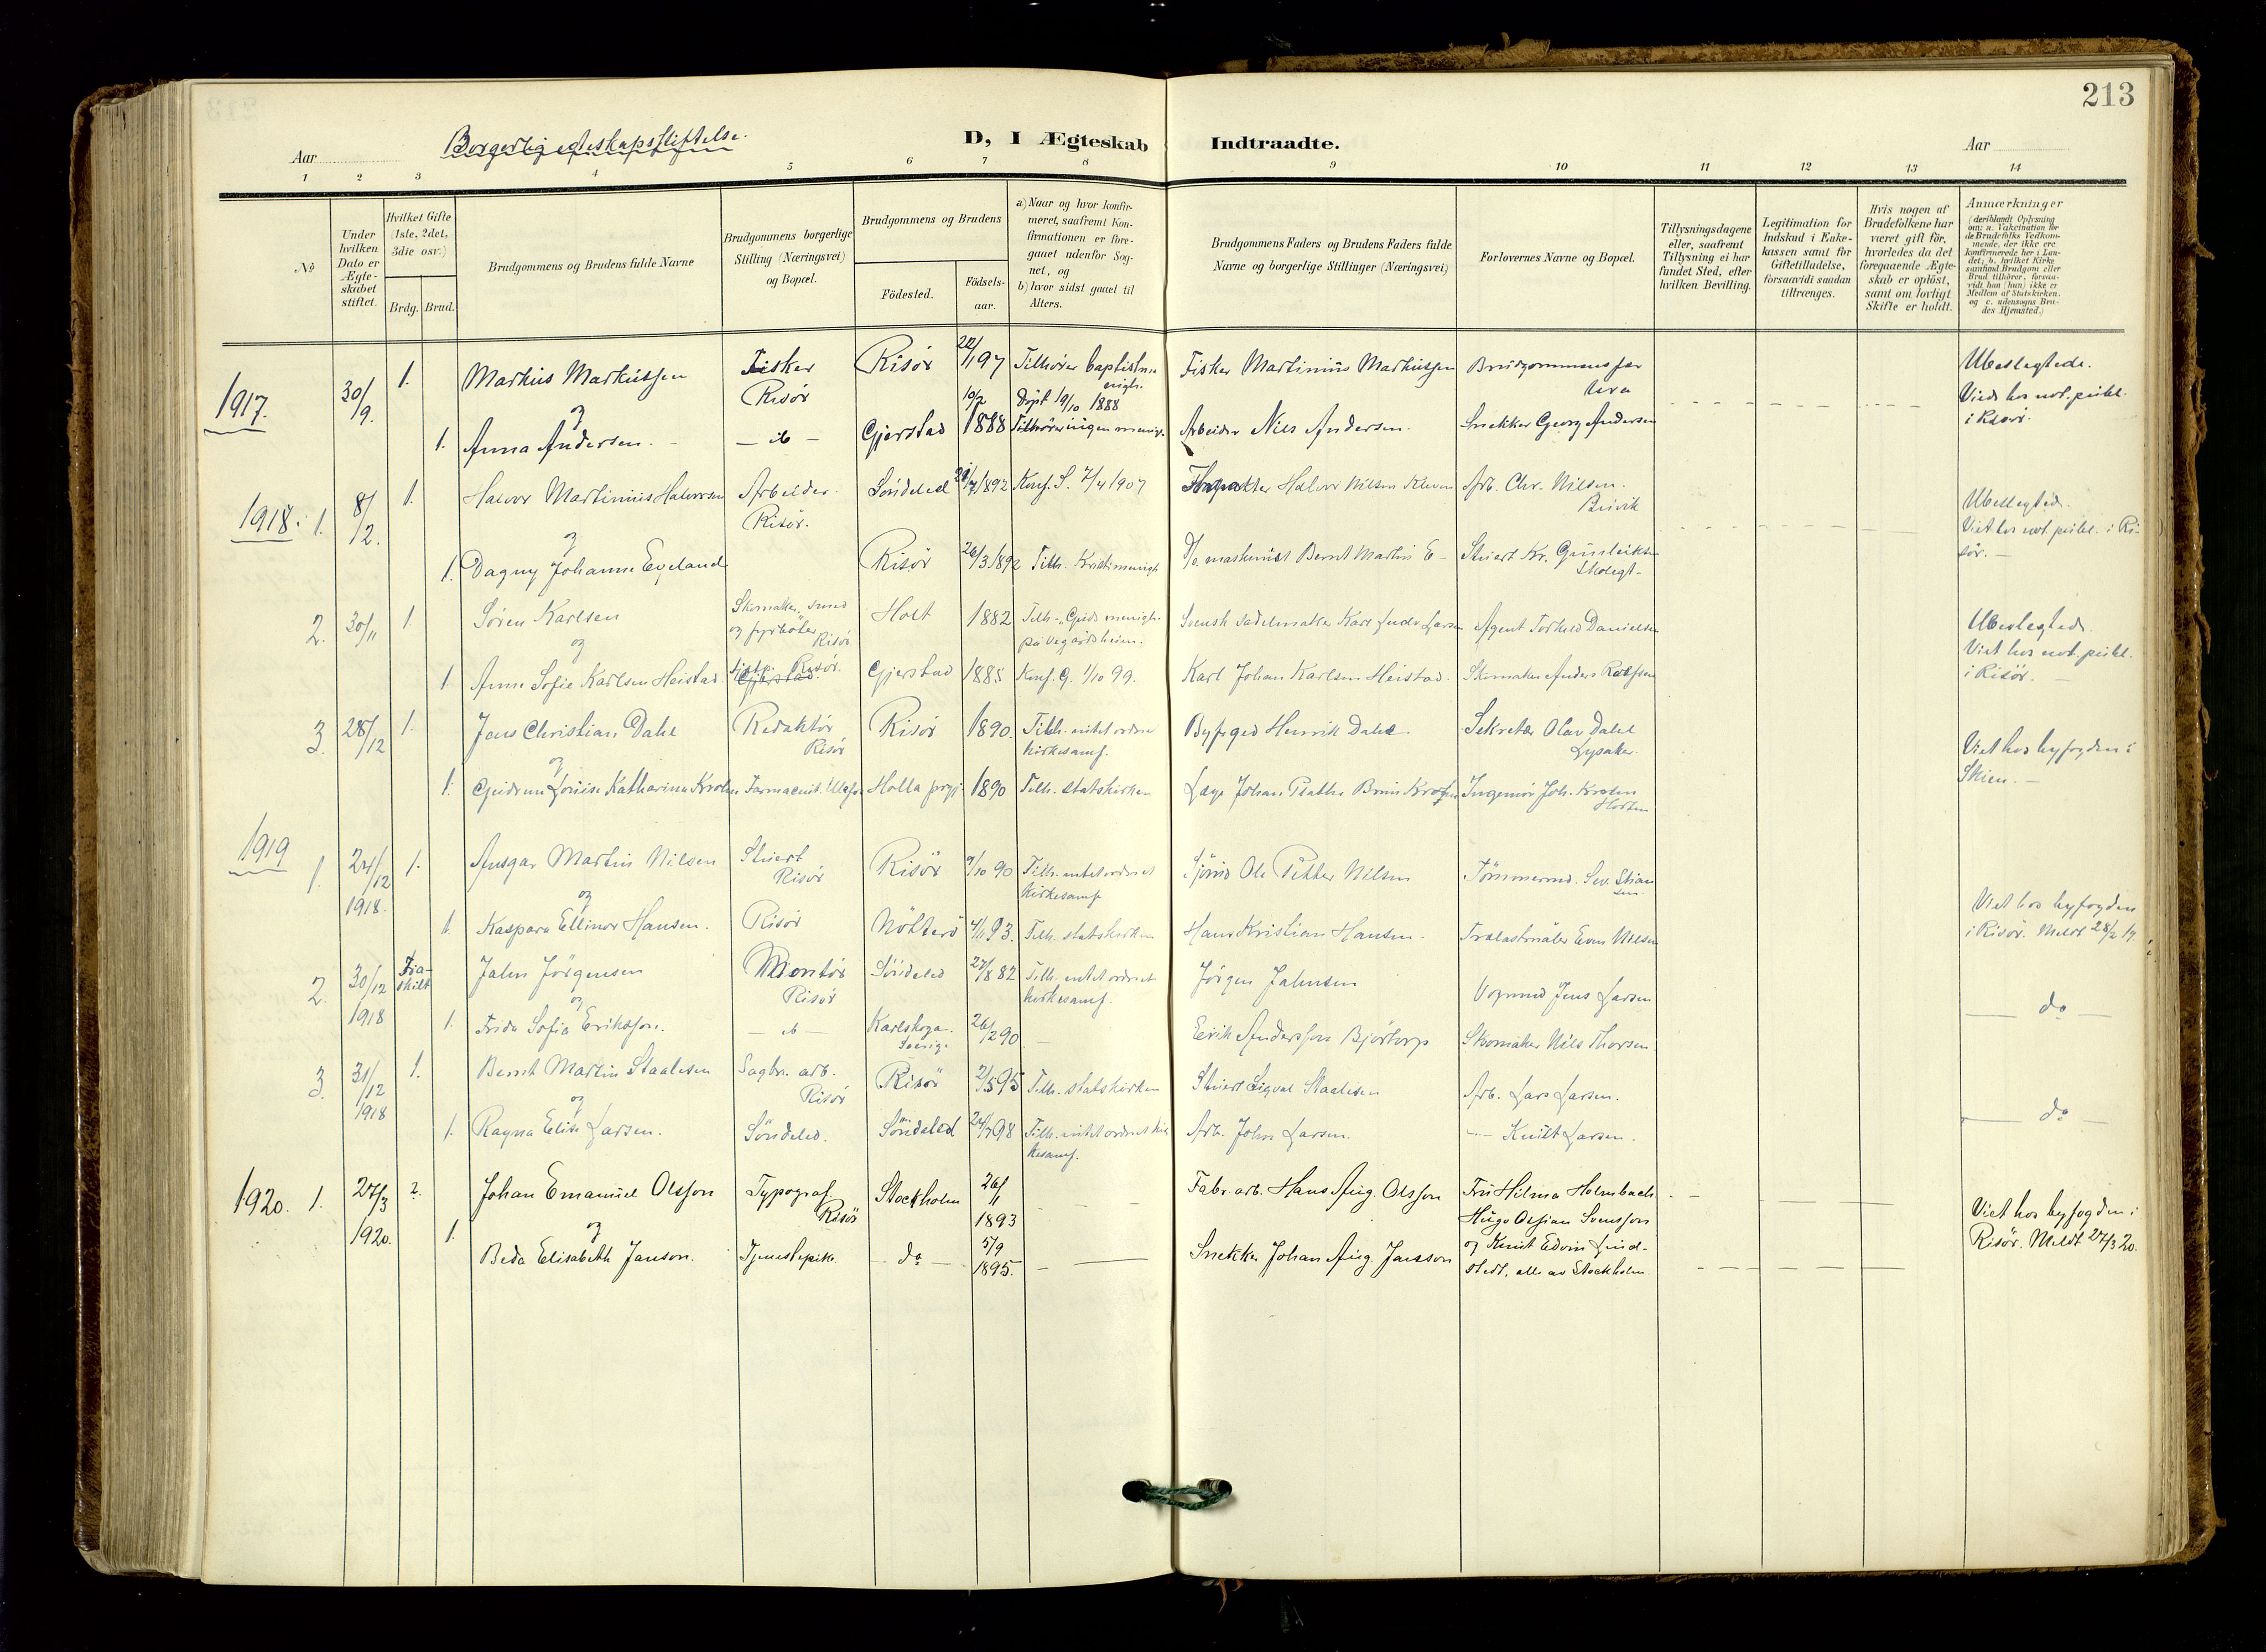 213
Borgerlig egteskapsstiftelse.
D, I Ægteskab Indtraadte.
Aar Aar
1 2 3 4 5 6 7 8 9 10 11 12 13 14
No
Under hvilken Dato er Ægteskabet stiftet.
Hvilket Gifte (1ste, 2det, 3die osv.)
Brdg. Brud.
Brudgommens og Brudens fulde Navne
Brudgommens borgerlige Stilling (Næringsvei) og Bopæl.
Brudgommens og Brudens
Fødested.
Fødselsaar.
a) Naar og hvor konfirmeret, saafremt Konfirmationen er foregaaet udenfor Sognet, og
b) hvor sidst gaaet til Alters.
Brudgommens Faders og Brudens Faders fulde Navne og borgerlige Stillinger (Næringsvei)
Forlovernes Navne og Bopæl.
Tillysningsdagene eller, saafremt Tillysning ei har fundet Sted, efter hvilken Bevilling.
Legitimation for Indskud i Enkekassen samt for Giftetilladelse, forsaavidt saadan tiltrænges.
Hvis nogen af Brudefolkene har været gift før, hvorledes da det foregaaende Ægteskab er opløst, samt om lovligt Skifte er holdt.
Anmærkninger
(deriblandt Oplysning om: a. Vakcination for de Brudefolks Vedkommende, der ikke ere konfirmerede her i Landet; b. hvilket Kirkesamfund Brudgom eller Brud tilhører, forsaavidt han (hun) ikke er Medlem af Statskirken, og c. udensogns Brudes Hjemsted.)
1917. 30/9. 1. Markus Markussen Fisker Risör Risör 22/1 97 Tilhører baptistmenigh. Fisker Martinius Markussen Brudgommens far Ubeslegtede.
og
Viede hos not. publ. i Risör.
1. Anna Andersen. – ib – Gjerstad 10/2 1888 döpt 19/10 1888 Tilhører ingen menigh. Arbeider Nils Andersen. Snekker Georg Andersen
1918. 1. 8/2. 1. Halvor Martinius Halvorsen Arbeider Risör. Söndeled 1892 Konf. S. 7/4 1907 Halvor Nilsen Arb. Chr. Nilsen. Buvik Ubeslegted.
og
Viet hos not. publ. i Risör. –
1. Dagny Johanne Egeland Risör 26/3 1892 Tilh. maskinist Bernt Martin E– Stuert Kr.
2. 30/11 1. Sören Karlsen Skomaker, smed og fyrböter Risör Holt 1882 Tilh. menigh. på Vegårdsheien. Svensk sadelmaker Karl Ludv. Larsen Agent Torkeld Danielsen Ubeslegted.
og
Viet hos not. publ. i Risör. –
1 Anne Sofie Karlsen Heistad Risör. Gjerstad. Gjerstad 1885 Konf. G. 1/10 99. Karl Johan Karlsen Heistad. Skomaker Anders
3. 28/12 1. Jens Christian Dahl Redaktör Risör Risör 1890. Tilh. intet ordnet kirkesamf. Byfoged Henrik Dahl. Sekretær Olav Dahl Lysaker. Viet hos byfogden i Skien. –
og
1. Gudrun Louise Katharina Farmaceut. Holla prgj. 1890 Tilh. statskirken Læge Johan Ingeniör Joh. Horten
1919 1. 24/12 1918. 1. Ansgar Martin Nilsen Stuert Risör Risör 9/10 90 Tilh. intet ordnet kirkesamf. Sjömd Ole Petter Nilsen Tömmermd.
og
1. Kaspara Ellinor Hansen. Risör Nötterö 4/11 93. Tilh. statskirken Hans Kristian Hansen. Even Nilsen Viet hos byfogden i Risör. Meldt 28/2 19.
2. 30/12 1918 Fraskilt Jahn Jörgensen Montör Risör Söndeled 27/8 82 Tilh. intet ordnet kirkesamf. Jörgen Jahnsen Vognmd Jens Larsen do
og
1. Frida Sofia Eriksson. – ib – Karlskoga. Sverige 26/2 90 – Erik Andersson Björtorp Skomaker Nils Thorsen.
3. 31/12 1918 1. Bernt Martin Staalesen Sagbr. arb. Risör Risör 2/5 95 Tilh. statskirken Stuert Sigval Staalesen Arb. Lars Larsen. do
og
1. Ragna Elise Larsen. Söndeled. Söndeled 24/7 98 Tilh. intet ordnet kirkesamf. Arb. John Larsen. –"– Knut Larsen.
1920. 1. 27/3 1920. 2. Johan Emanuel Olsson Typograf Risör Stockholm 26/1 1893 Fabr. arb. Hans Aug. Olsson Fru Hilma Holmbach Viet hos byfogden i Risör. Meldt 27/3 20.
og
1. Beda Elisabeth Janson. Tjenestepike. do 5/9 1895. Snekker Johan Aug. Jansson Hugo Ossian Svensson og Knut Edvin Lindstedt, alle av Stockholm